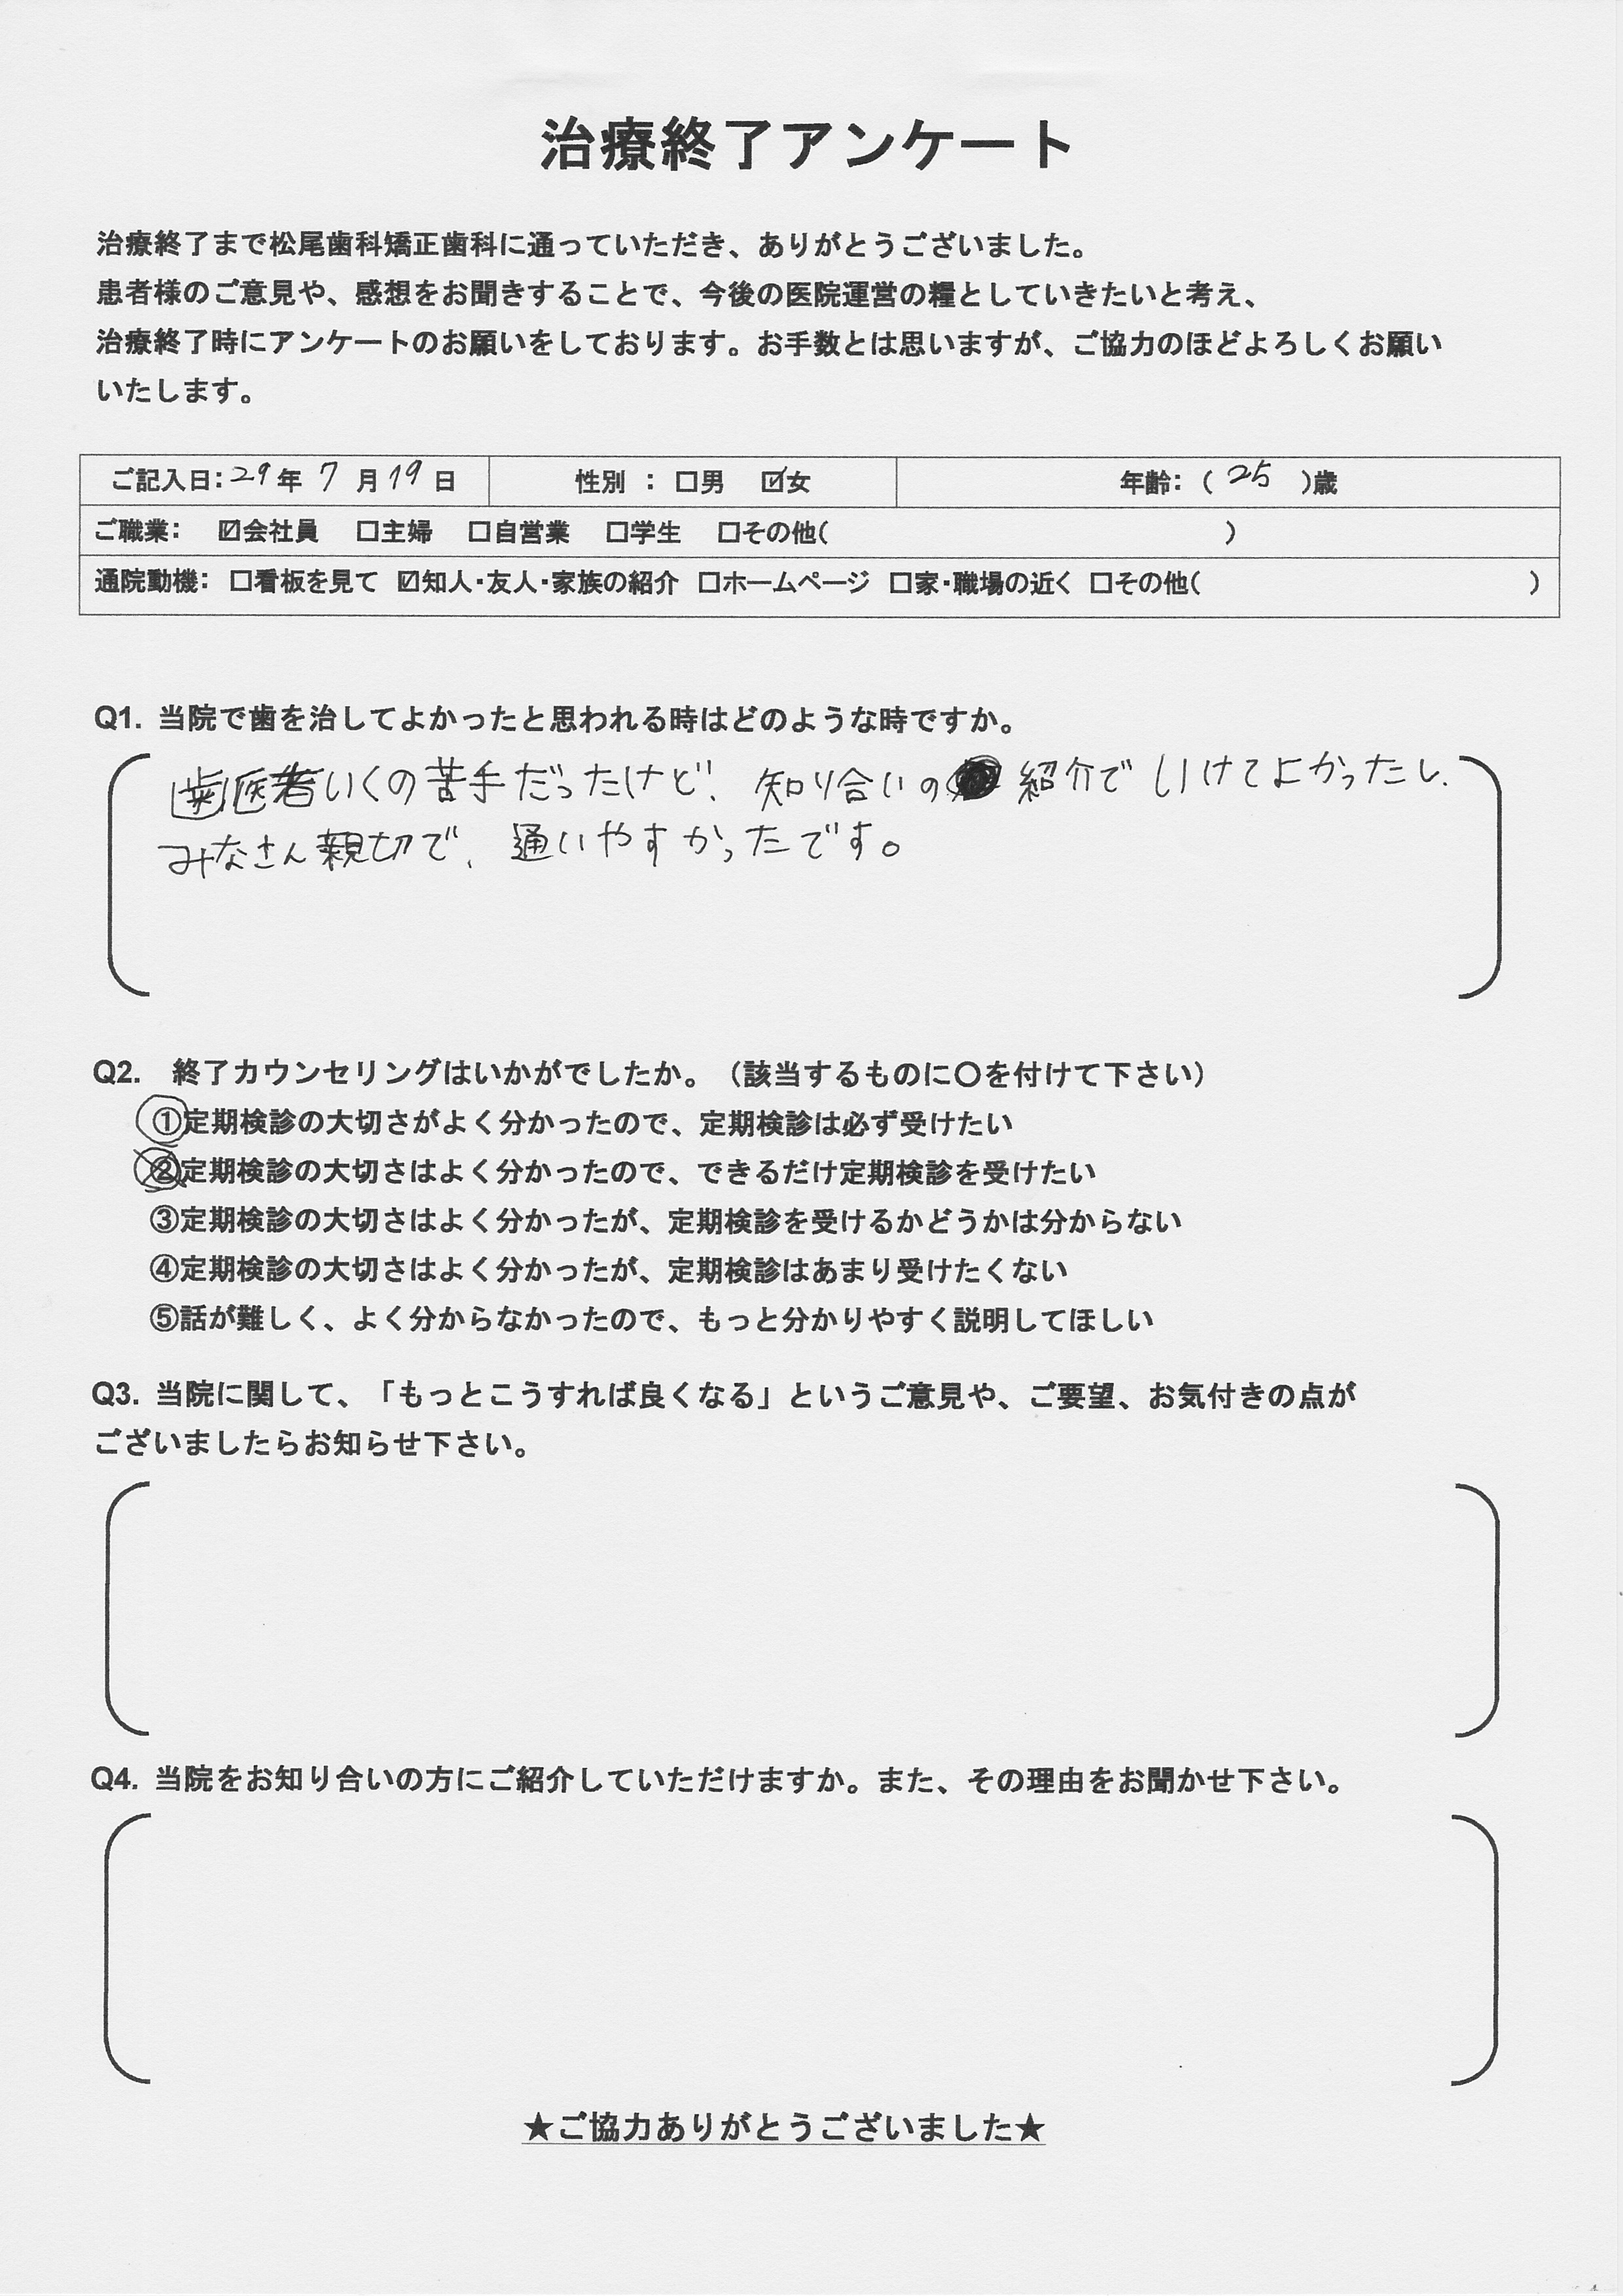 治療終了アンケート
治療終了まで松尾歯科矯正歯科に通っていただき、ありがとうございました。
患者様のご意見や、感想をお聞きすることで、今後の医院運営の糧としていきたいと考え、
治療終了時にアンケートのお願いをしております。お手数とは思いますが、ご協力のほどよろしくお願い
いたします。
ご記入日：29年 7 月 19 日 性別 ： □男 ☑女 年齢：（ 25 ）歳
ご職業： ☑会社員 □主婦 □自営業 □学生 □その他（ ）
通院動機： □看板を見て ☑知人・友人・家族の紹介 □ホームページ □家・職場の近く □その他（ ）
Q1. 当院で歯を治してよかったと思われる時はどのような時ですか。
歯医者いくの苦手だったけど、知り合いの紹介でいけてよかったし、
みなさん親切で、通いやすかったです。
Q2. 終了カウンセリングはいかがでしたか。（該当するものに〇を付けて下さい）
①定期検診の大切さがよく分かったので、定期検診は必ず受けたい
②定期検診の大切さはよく分かったので、できるだけ定期検診を受けたい
③定期検診の大切さはよく分かったが、定期検診を受けるかどうかは分からない
④定期検診の大切さはよく分かったが、定期検診はあまり受けたくない
⑤話が難しく、よく分からなかったので、もっと分かりやすく説明してほしい
Q3. 当院に関して、「もっとこうすれば良くなる」というご意見や、ご要望、お気付きの点が
ございましたらお知らせ下さい。
Q4. 当院をお知り合いの方にご紹介していただけますか。また、その理由をお聞かせ下さい。
★ご協力ありがとうございました★